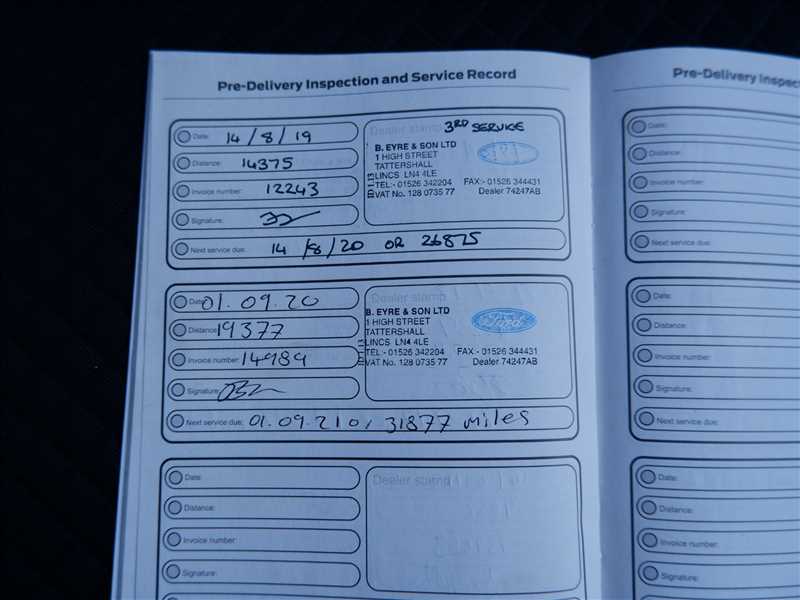 Pre-Delivery Inspection and Service Record
Date: 14/8/19
Distance: 14375
Invoice number: 12243
Signature:
Next service due: 14/8/20 OR 26875
Dealer stamp 3RD SERVICE
B. EYRE & SON LTD
1 HIGH STREET
TATTERSHALL
LINCS LN4 4LE
TEL:- 01526 342204 FAX:- 01526 344431
VAT No. 128 0735 77 Dealer 74247AB
Date: 01.09.20
Distance: 19377
Invoice number: 14989
Signature:
Next service due: 01.09.21 or 31877 miles
Dealer stamp
B. EYRE & SON LTD
Ford
1 HIGH STREET
TATTERSHALL
LINCS LN4 4LE
TEL:- 01526 342204 FAX:- 01526 344431
VAT No. 128 0735 77 Dealer 74247AB
Date:
Distance:
Invoice number:
Signature:
Dealer stamp
Pre-Delivery Inspec
Date:
Distance:
Invoice number:
Signature:
Next service due:
Date:
Distance:
Invoice number:
Signature:
Next service due:
Date:
Distance:
Invoice number:
Signature: